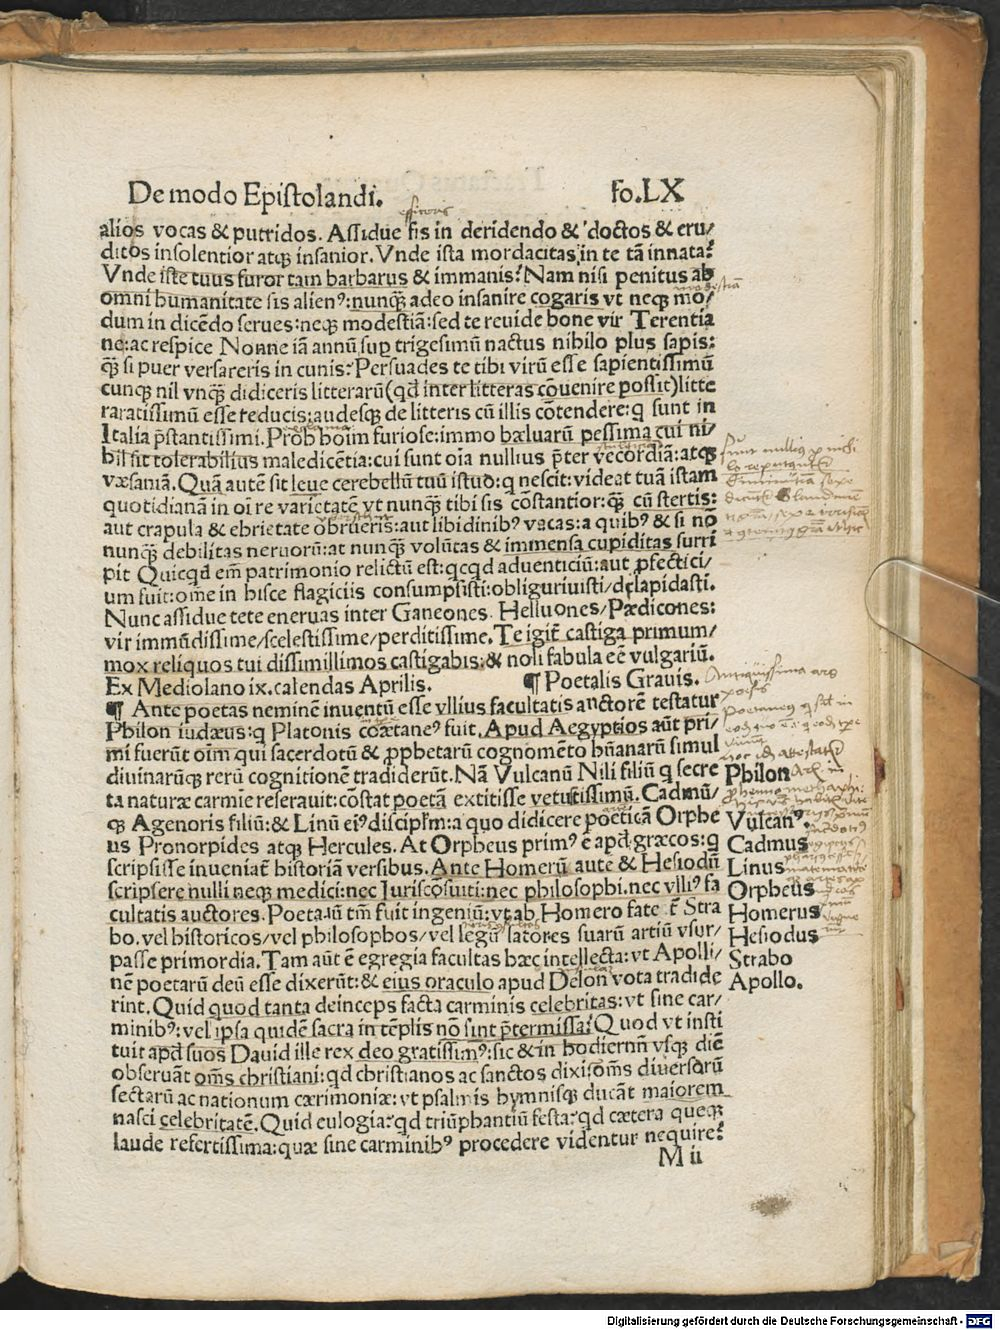 De modo Epistolandi. fo.LX
alios vocas & putridos. Assidue sis in deridendo & doctos & eru/
ditos insolentior atqꝫ insanior. Vnde ista mordacitas in te tā innata?
Vnde iste tuus furor tam barbarus & immanis? Nam nisi penitus ab
omni humanitate sis alienꝰ: nunqꝫ adeo insanire cogaris vt neqꝫ mo/
dum in dicēdo serues: neqꝫ modestiā: sed te reuide bone vir Terentia
ne: ac respice Nonne iā annū sup trigesimū nactus nihilo plus sapis:
qꝫ si puer versareris in cunis? Persuades te tibi virū esse sapientissimū
cunqꝫ nil vnqꝫ didiceris litterarū (qd inter litteras cōuenire possit) litte
raratissimū esse te ducis: audesqꝫ de litteris cū illis cōtendere: q sunt in
Italia p̄stantissimi. Proh hoim furiose: immo bæluarū pessima cui ni/
hil sit tolerabilius maledicētia: cui sunt oīa nullius p̄ter vecordiā: atqꝫ
væsaniā. Quā autē sit leue cerebellū tuū istud: q nescit: videat tuā istam
quotidianā in oī re varietatē vt nunqꝫ tibi sis cōstantior: qꝫ cū stertis:
aut crapula & ebrietate obrueris: aut libidinibꝰ vacas: a quibꝰ & si nō
nunqꝫ debilitas neruorū: at nunqꝫ volūtas & immensa cupiditas surri
pit Quicqd em̄ patrimonio relictū est: qcqd aduenticiū: aut p̄fectici/
um fuit: om̄e in hisce flagiciis consumpsisti: obliguriuisti / delapidasti.
Nunc assidue tete eneruas inter Ganeones. Helluones / Pædicones:
vir immūdissime / scelestissime / perditissime. Te igit̄ castiga primum /
mox reliquos tui dissimillimos castigabis: & noli fabula eē vulgariū.
Ex Mediolano ix. calendas Aprilis. ¶ Poetalis Grauis.
¶ Ante poetas neminē inuentū esse vllius facultatis auctorē testatur
Philon iudæus: q Platonis coætaneꝰ fuit. Apud Aegyptios aūt pri/
mi fuerūt oīm qui sacerdotū & pphetarū cognomēto hūanarū simul
diuinarūqꝫ rerū cognitionē tradiderūt. Nā Vulcanū Nili filiū q secre
ta naturæ carmīe reserauit: cōstat poetā extitisse vetustissimū. Cadmū /
qꝫ Agenoris filiū: & Linū eiꝰ discip̄lm: a quo didicere poeticā Orphe
us Pronorpides atqꝫ Hercules. At Orpheus primꝰ ē apd græcos: q
scripsisse inueniat̄ historiā versibus. Ante Homerū aute & Hesiodū
scripsere nulli neqꝫ medici: nec Iuriscōsulti: nec philosophi. nec vlliꝰ fa
cultatis auctores. Poetarū tm̄ fuit ingeniū: vt ab Homero fatet̄ Stra
bo. vel historicos / vel philosophos / vel legū latores suarū artiū vsur/
passe primordia. Tam aūt ē egregia facultas hæc intellecta: vt Apolli/
nē poetarū deū esse dixerūt: & eius oraculo apud Delon vota tradide
rint. Quid quod tanta deinceps facta carminis celebritas: vt sine car/
minibꝰ: vel ipsa quidē sacra in tēplis nō sint p̄termissa? Quod vt insti
tuit apd suos Dauid ille rex deo gratissimꝰ: sic & in hodiernū vsqꝫ diē
obseruāt om̄s christiani: qd christianos ac sanctos dixi: om̄s diuersarū
sectarū ac nationum cærimoniæ: vt psalmis hymnisqꝫ ducāt maiorem
nasci celebritatē. Quid eulogia: qd triūphantiū festa: qd cætera queqꝫ
laude refertissima: quæ sine carminibꝰ procedere videntur nequire?
M ii
Philon
Vulcanꝰ.
Cadmus
Linus
Orpheus
Homerus
Hesiodus
Strabo
Apollo.
Digitalisierung gefördert durch die Deutsche Forschungsgemeinschaft - DFG